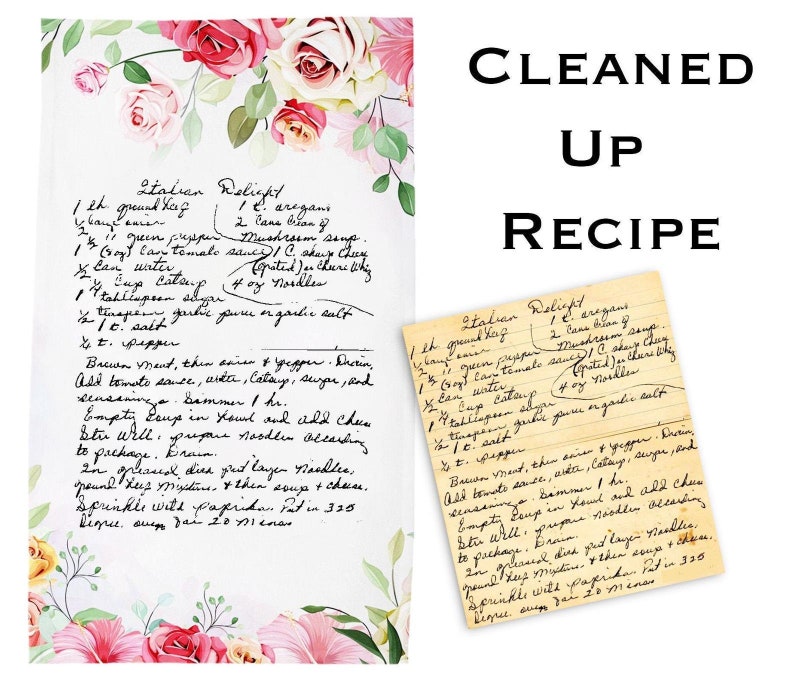 CLEANED
UP
RECIPE
Italian Delight
1 lb. ground beef
1/2 large onion
1/2 " green pepper
1 (8oz) Can tomato sauce
1/2 Can water
1/4 Cup Catsup
1 tablespoon sugar
1/2 teaspoon garlic puree or garlic salt
1 t. salt
1/4 t. pepper
1 t. oregano
2 Cans Cream of
Mushroom soup.
1 C. sharp Cheese
(grated) or Cheese Whiz
4 oz Noodles
Brown meat, then onion & pepper. Drain,
Add tomato sauce, water, Catsup, sugar, and
seasonings. Simmer 1 hr.
Empty Soup in bowl and add cheese
Stir Well. prepare Noodles according
to package. Drain.
In greased dish put layer Noodles,
ground beef mixture, & then soup & cheese.
Sprinkle with paprika. Put in 325
Degree. oven for 20 Minas
Italian Delight
1 lb. ground beef
1/2 large onion
1/2 " green pepper
1 (8oz) Can tomato sauce
1/2 Can water
1/4 Cup Catsup
1 tablespoon sugar
1/2 teaspoon garlic puree or garlic salt
1 t. salt
1/4 t. pepper
1 t. oregano
2 Cans Cream of
Mushroom soup.
1 C. sharp Cheese
(grated) or Cheese Whiz
4 oz Noodles
Brown meat, then onion & pepper. Drain,
Add tomato sauce, water, Catsup, sugar, and
seasonings. Simmer 1 hr.
Empty Soup in bowl and add cheese
Stir Well. prepare Noodles according
to package. Drain.
In greased dish put layer Noodles,
ground beef mixture, & then soup & cheese.
Sprinkle with paprika. Put in 325
Degree. oven for 20 Minas